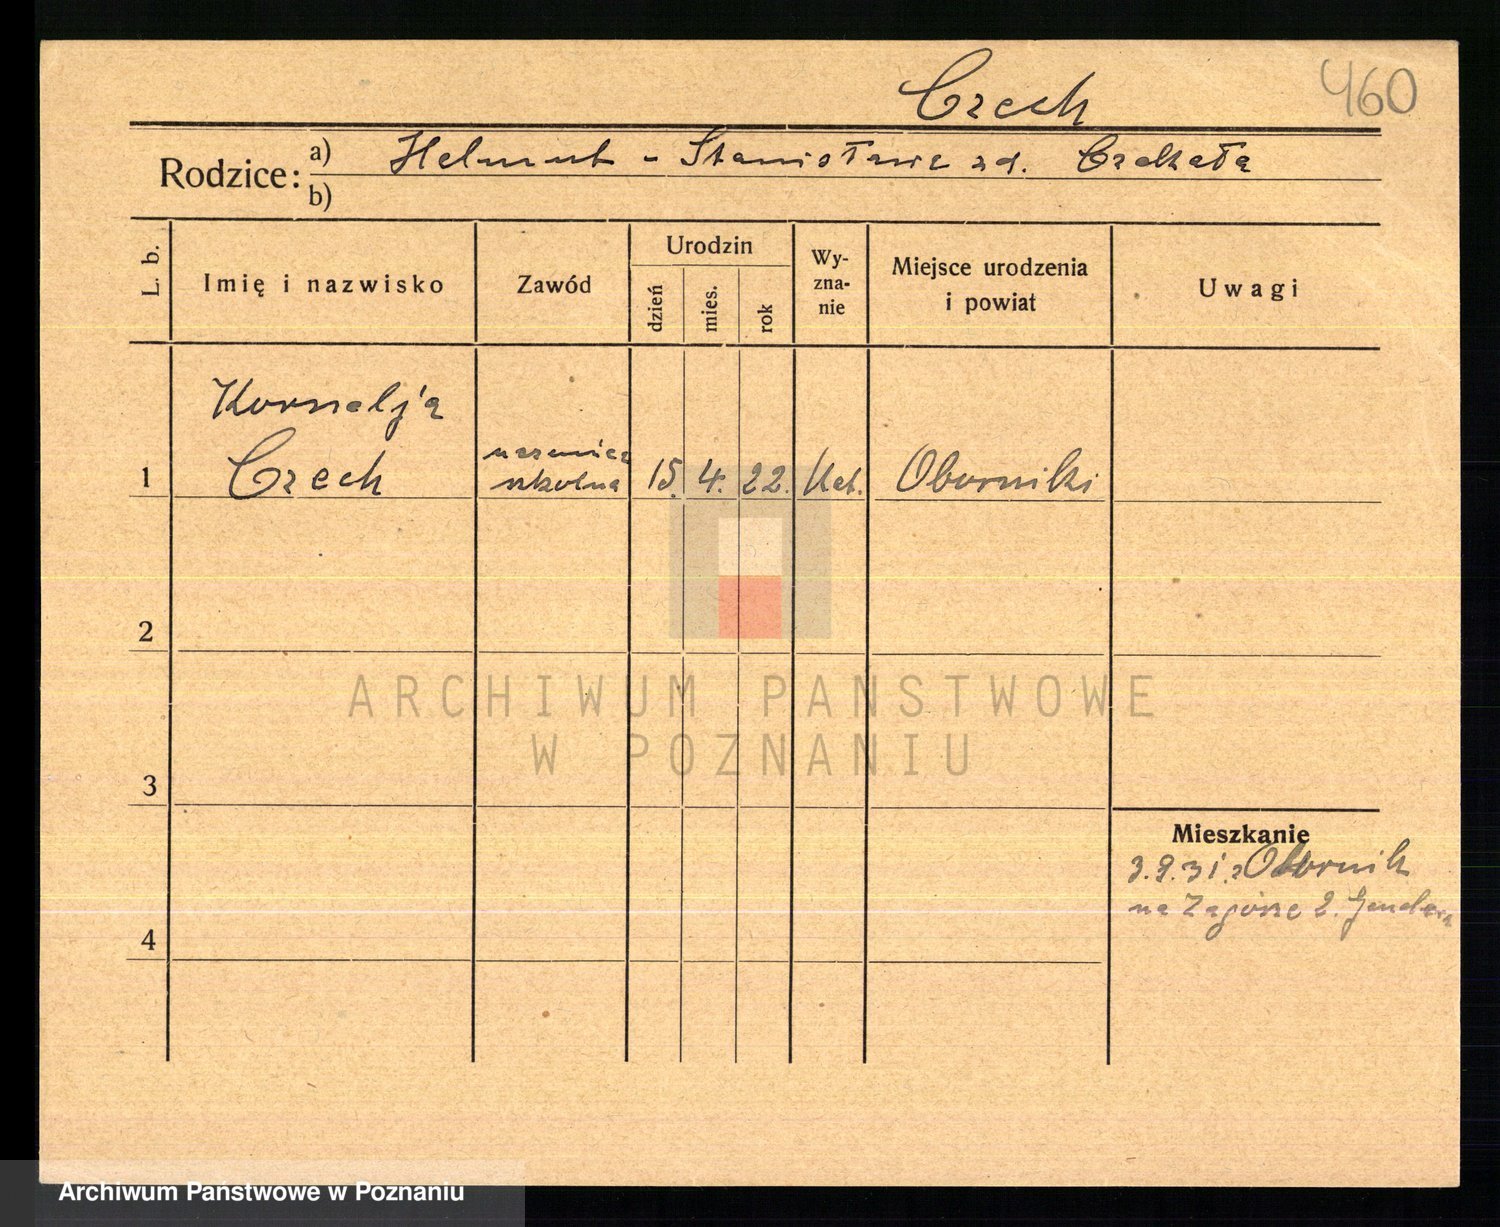 Czech
460
Rodzice: a) Helmut - Stanisława zd. Czekała
b)
L. b.
Imię i nazwisko
Zawód
Urodzin
dzień
mies.
rok
Wy-
zna-
nie
Miejsce urodzenia
i powiat
Uwagi
Kornelja
Czech
uczenica
szkolna
1 15. 4. 22. Kat. Oborniki
2
3
4
Mieszkanie
3.9.31. z Obornik
na Zagórze 2.
ARCHIWUM PAŃSTWOWE
W POZNANIU
Archiwum Państwowe w Poznaniu